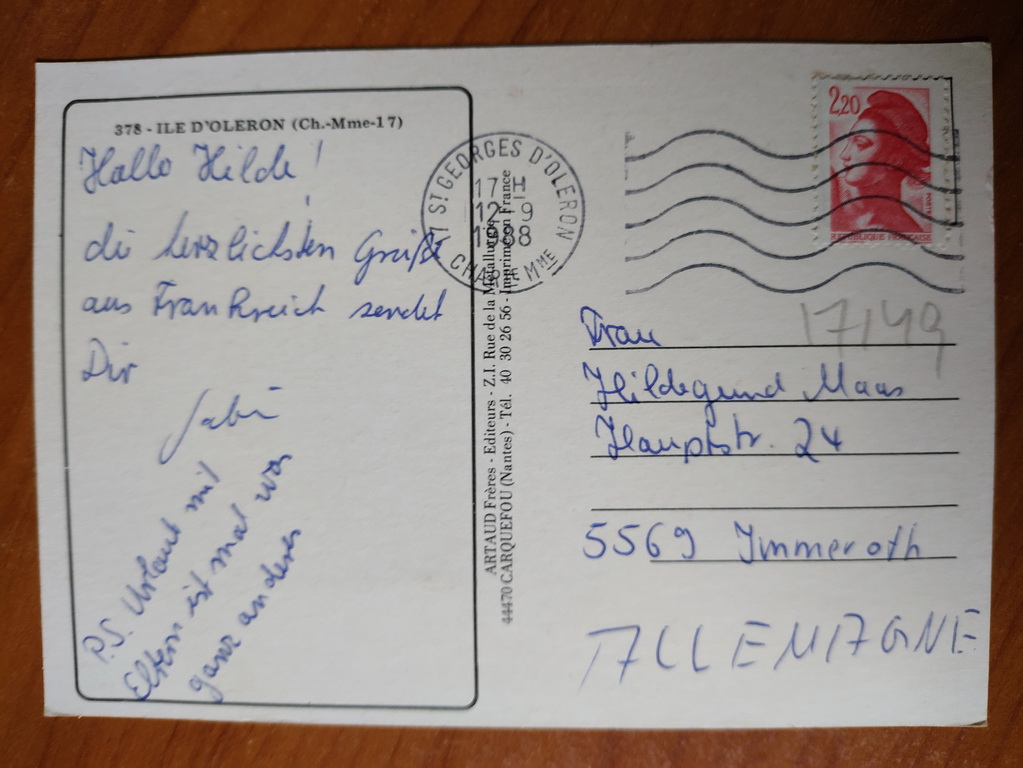 378 - ILE D'OLERON (Ch.-Mme-17)
Hallo Hilde!
die herzlichsten Grüße
aus Frankreich sendet
Dir
Sabi
P.S. Urlaub mit
Eltern ist mal was
ganz anderes
17 St GEORGES D'OLERON
17 H
12 - 9
1988
CHAR. Mme
ARTAUD Frères - Editeurs - Z.I. Rue de la Métallurgie
44470 CARQUEFOU (Nantes) - Tél. 40 30 26 56 - Imprimé en France
2,20
REPUBLIQUE FRANÇAISE
17/49
Frau
Hildegund Maas
Hauptstr. 24
5569 Immeroth
ALLEMAGNE